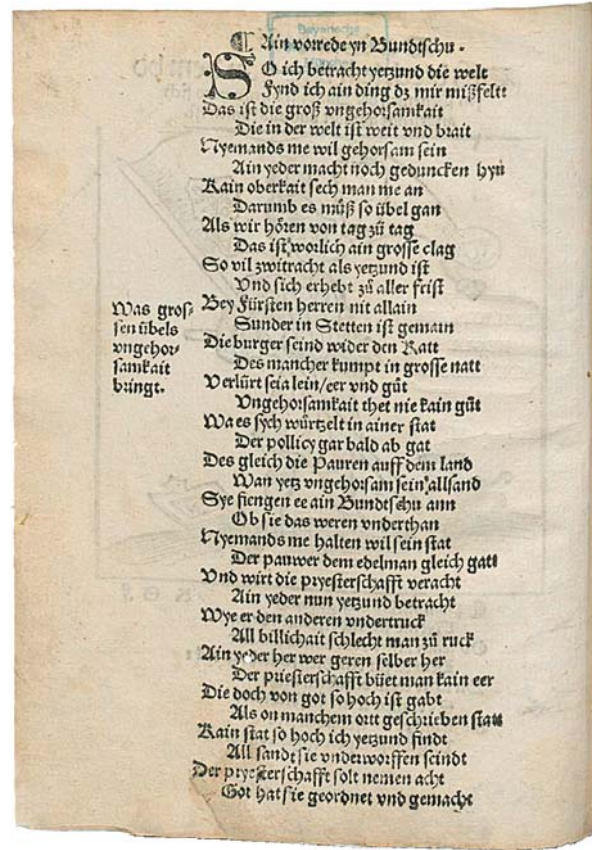 Bayerische
¶ Ain vorrede yn Bundtschu .
SO ich betracht yetzund die welt
Fynd ich ain ding dz mir mißfelt
Das ist die groß vngehorsamkait
Die in der welt ist weit vnd brait
Nyemands me wil gehorsam sein
Ain yeder macht noch geduncken hyn
Kain oberkait sech man me an
Darumb es muͤß so übel gan
Als wir hören von tag zuͤ tag
Das ist worlich ain grosse clag
So vil zwitracht als yetzund ist
Vnd sich erhebt zuͤ aller frist
Bey Fürsten herren nit allain
Sunder in Stetten ist gemain
Die burger seind wider den Ratt
Des mancher kumpt in grosse natt
Verlürt seia lein/eer vnd guͤt
Vngehorsamkait thet nie kain guͤt
Wa es sych würtzelt in ainer stat
Der pollicy gar bald ab gat
Des gleich die Pauren auff dem land
Wan yetz vngehorsam sein allsand
Sye fiengen ee ain Bundtschu ann
Ob sie das weren vnderthan
Nyemands me halten wil sein stat
Der pauwer dem edelman gleich gatt
Vnd wirt die pryesterschafft veracht
Ain yeder nun yetzund betracht
Wye er den anderen vndertruck
All billichait schlecht man zuͤ ruck
Ain yeder her wer geren selber her
Der priesterschafft büet man kain eer
Die doch von got so hoch ist gabt
Als on manchem ortt geschrieben statt
Kain stat so hoch ich yetzund findt
All sandt sie vnderworffen seindt
Der pryesterschafft solt nemen acht
Got hat sie geordnet vnd gemacht
Was gros-
sen übels
vngehor-
samkait
bringt.